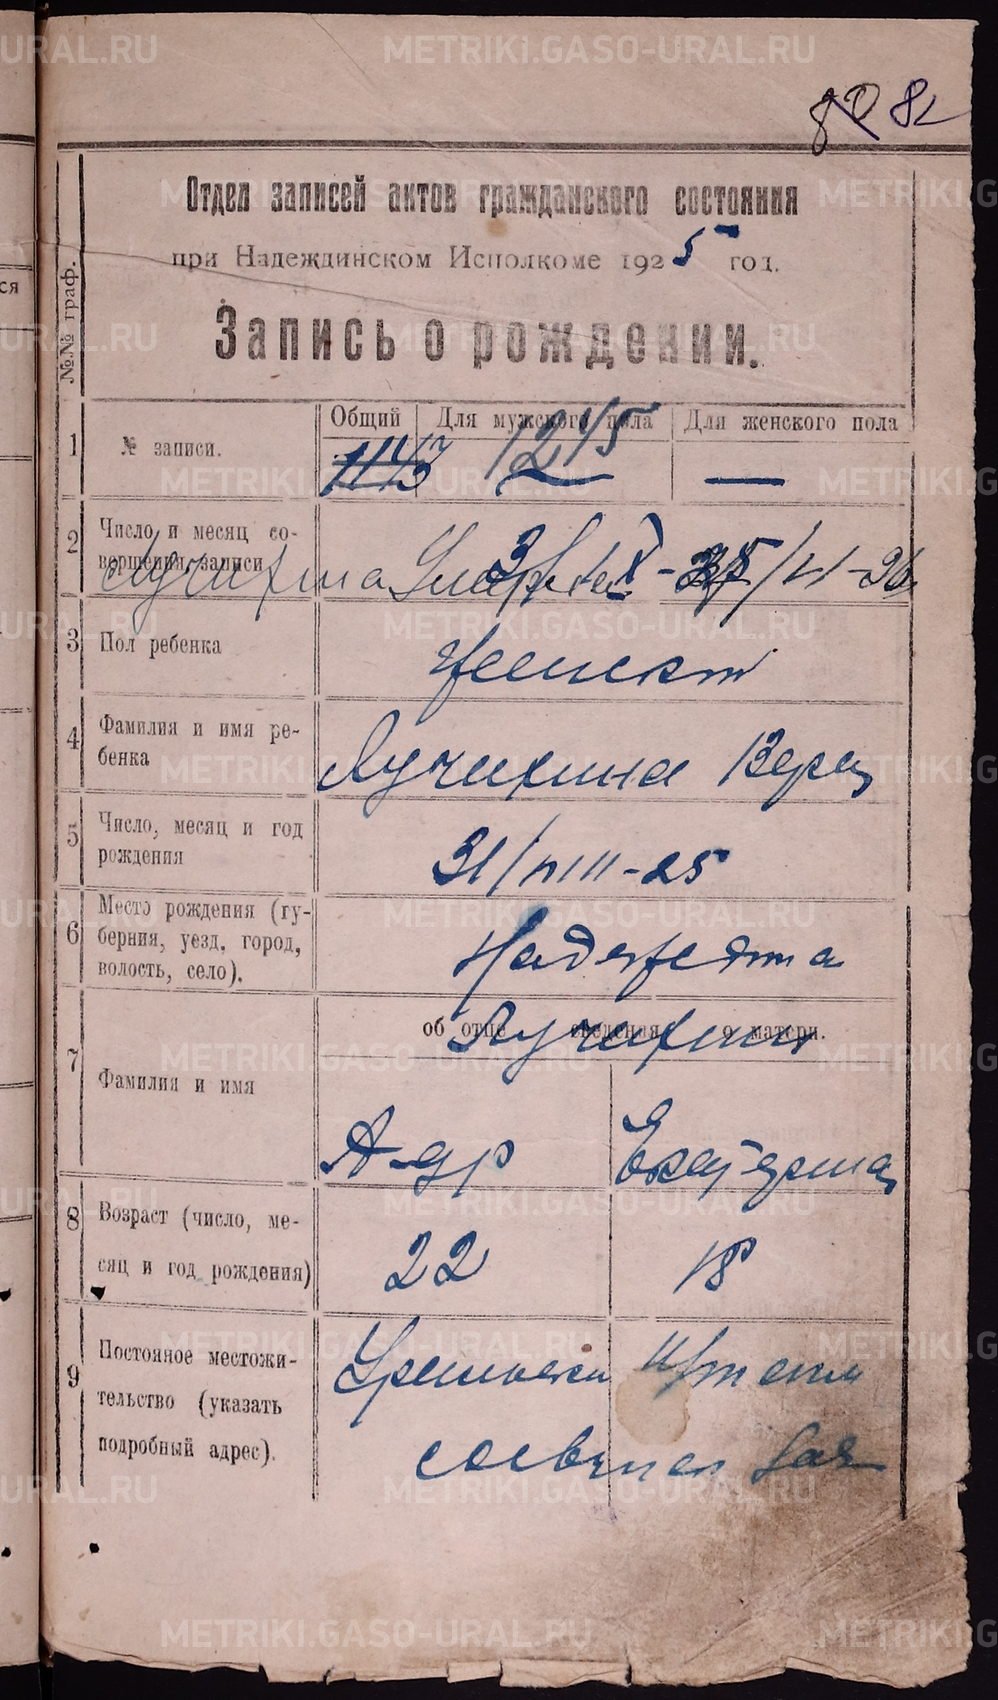 METRIKI.GASO-URAL.RU
82
Отдел записей актов гражданского состояния
при Надеждинском Исполкоме 1925 год.
Запись о рождении.
№№ граф.
Общий Для мужского пола Для женского пола
1 № записи. 1143 1215 —
2 Число и месяц со-
вершения записи 3/IX-25
Лучихина Умерла /VI-26
3 Пол ребенка женский
4 Фамилия и имя ре-
бенка Лучихина Вера
5 Число, месяц и год
рождения 31/VIII-25
6 Место рождения (гу-
берния, уезд, город,
волость, село). Надеждинск
об отце сведения о матери.
Лучихин
7 Фамилия и имя
А-др Екатерина
8 Возраст (число, ме-
сяц и год рождения) 22 18
9 Постоянное местожи-
тельство (указать
подробный адрес).